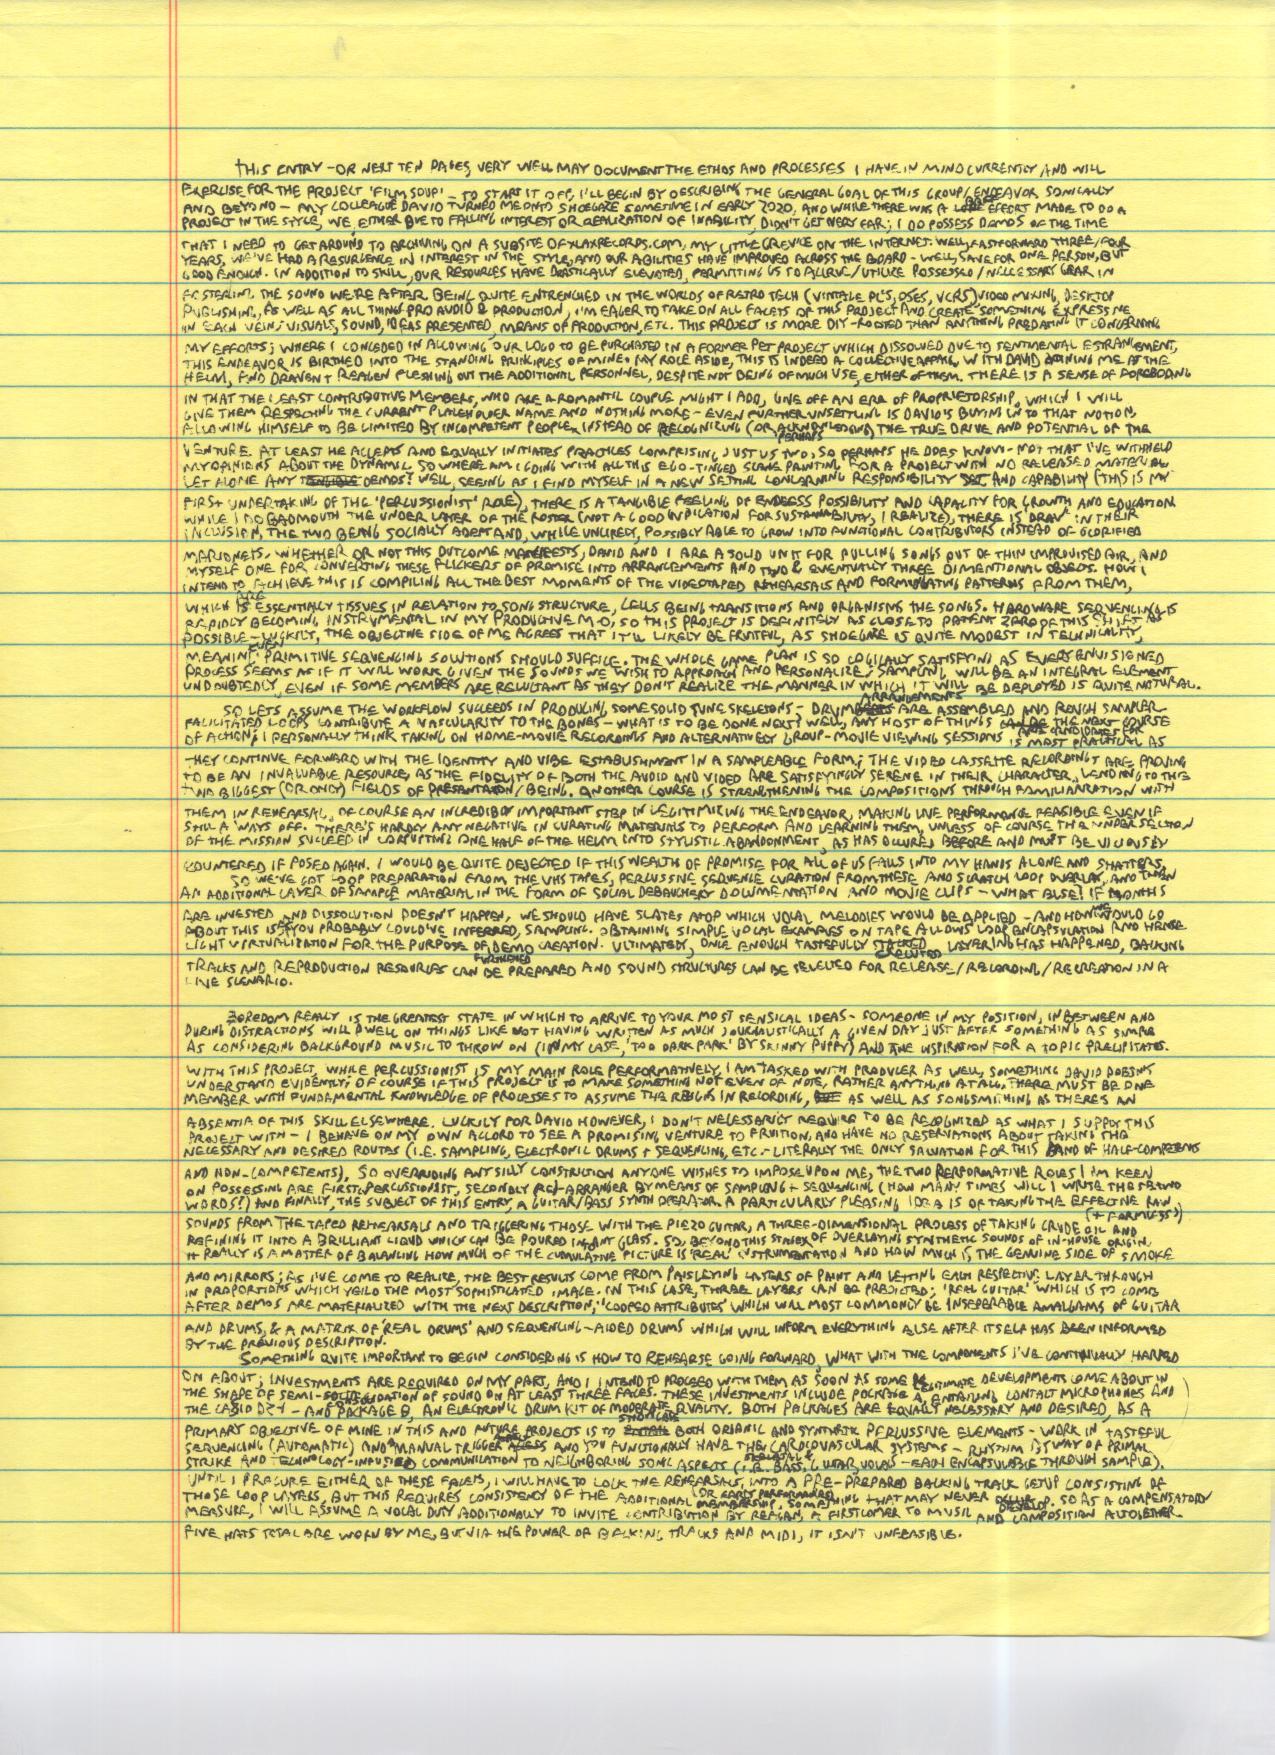 THIS ENTRY - OR NEXT TEN PAGES, VERY WELL MAY DOCUMENT THE ETHOS AND PROCESSES I HAVE IN MIND CURRENTLY AND WILL
EXERCISE FOR THE PROJECT 'FILM SOUP' - TO START IT OFF, I'LL BEGIN BY DESCRIBING THE GENERAL GOAL OF THIS GROUP/ENDEAVOR SONICALLY
AND BEYOND - MY COLLEAGUE DAVID TURNED ME ONTO SHOEGAZE SOMETIME IN EARLY 2020, AND WHILE THERE WAS A EFFORT MADE TO DO A
PROJECT IN THE STYLE, WE, EITHER DUE TO FALLING INTEREST OR REALIZATION OF INABILITY, DIDN'T GET VERY FAR; I DO POSSESS DEMOS OF THE TIME
THAT I NEED TO GET AROUND TO ARCHIVING ON A SUBSITE OF XLAXRECORDS.COM, MY LITTLE CREVICE ON THE INTERNET. WELL, FASTFORWARD THREE/FOUR
YEARS, WE'VE HAD A RESURGENCE IN INTEREST IN THE STYLE, AND OUR ABILITIES HAVE IMPROVED ACROSS THE BOARD - WELL, SAVE FOR ONE PERSON, BUT
GOOD ENOUGH. IN ADDITION TO SKILL, OUR RESOURCES HAVE DRASTICALLY ELEVATED, PERMITTING US TO ALLURE/UTILIZE POSSESSED/NECESSARY GEAR IN
FOSTERING THE SOUND WE'RE AFTER. BEING QUITE ENTRENCHED IN THE WORLDS OF RETRO TECH (VINTAGE PC'S, OSES, VCRS) VIDEO MIXING, DESKTOP
PUBLISHING, AS WELL AS ALL THINGS PRO AUDIO & PRODUCTION, I'M EAGER TO TAKE ON ALL FACETS OF THIS PROJECT AND CREATE SOMETHING EXPRESSIVE
IN EACH VEIN; VISUALS, SOUND, IDEAS PRESENTED, MEANS OF PRODUCTION, ETC. THIS PROJECT IS MORE DIY-ROOTED THAN ANYTHING PREDATING IT CONCERNING
MY EFFORTS; WHERE I CONCEDED IN ALLOWING OUR LOGO TO BE PURCHASED IN A FORMER PET PROJECT WHICH DISSOLVED DUE TO SENTIMENTAL ESTRANGEMENT,
THIS ENDEAVOR IS BIRTHED INTO THE STANDING PRINCIPLES OF MINE. MY ROLE ASIDE, THIS IS INDEED A COLLECTIVE AFFAIR, WITH DAVID JOINING ME AT THE
HELM, AND DRAVEN & REAGEN FLESHING OUT THE ADDITIONAL PERSONNEL, DESPITE NOT BEING OF MUCH USE, EITHER OF THEM. THERE IS A SENSE OF FOREBODING
IN THAT THE LEAST CONTRIBUTIVE MEMBERS, WHO ARE A ROMANTIC COUPLE MIGHT I ADD, GIVE OFF AN ERR OF PROPRIETORSHIP, WHICH I WILL
GIVE THEM RESPECTING THE CURRENT PLACEHOLDER NAME AND NOTHING MORE - EVEN FURTHER UNSETTLING IS DAVID'S BUYING INTO THAT NOTION,
ALLOWING HIMSELF TO BE LIMITED BY INCOMPETENT PEOPLE, INSTEAD OF RECOGNIZING (OR PERHAPS ACKNOWLEDGING) THE TRUE DRIVE AND POTENTIAL OF THE
VENTURE. AT LEAST HE ACCEPTS AND EQUALLY INITIATES PRACTICES COMPRISING JUST US TWO, SO PERHAPS HE DOES KNOW - NOT THAT I'VE WITHHELD
MY OPINIONS ABOUT THE DYNAMIC. SO WHERE AM I GOING WITH ALL THIS EGO-TINGED SCENE PAINTING FOR A PROJECT WITH NO RELEASED MATERIAL
LET ALONE ANY DEMOS? WELL, SEEING AS I FIND MYSELF IN A NEW SETTING CONCERNING RESPONSIBILITY AND CAPABILITY (THIS IS MY
FIRST UNDERTAKING OF THE 'PERCUSSIONIST' ROLE), THERE IS A TANGIBLE FEELING OF ENDLESS POSSIBILITY AND CAPACITY FOR GROWTH AND EDUCATION
WHILE I DO BADMOUTH THE UNDER LAYER OF THE ROSTER (NOT A GOOD INDICATION FOR SUSTAINABILITY, I REALIZE), THERE IS DRAW IN THEIR
INCLUSION, THE TWO BEING SOCIALLY ADEPT AND, WHILE UNLIKELY, POSSIBLY ABLE TO GROW INTO FUNCTIONAL CONTRIBUTORS INSTEAD OF GLORIFIED
MARIONETS. WHETHER OR NOT THIS OUTCOME MANIFESTS, DAVID AND I ARE A SOLID UNIT FOR PULLING SONGS OUT OF THIN IMPROVISED AIR, AND
MYSELF ONE FOR CONVERTING THESE FLICKERS OF PROMISE INTO ARRANGEMENTS AND TWO & EVENTUALLY THREE DIMENTIONAL OBJECTS. HOW I
INTEND TO ACHIEVE THIS IS COMPILING ALL THE BEST MOMENTS OF THE VIDEOTAPED REHEARSALS AND FORMULATING PATTERNS FROM THEM,
WHICH ARE ESSENTIALLY TISSUES IN RELATION TO SONG STRUCTURE, CELLS BEING TRANSITIONS AND ORGANISMS THE SONGS. HARDWARE SEQUENCING IS
RAPIDLY BECOMING INSTRUMENTAL IN MY PRODUCTIVE M.O, SO THIS PROJECT IS DEFINITELY AS CLOSE TO PATIENT ZERO OF THIS SHIFT AS
POSSIBLE - LUCKILY, THE OBJECTIVE SIDE OF ME AGREES THAT IT'LL LIKELY BE FRUITFUL, AS SHOEGAZE IS QUITE MODEST IN TECHNICALITY,
MEANING EVEN PRIMITIVE SEQUENCING SOLUTIONS SHOULD SUFFICE. THE WHOLE GAME PLAN IS SO LOGICALLY SATISFYING AS EVERY ENVISIGNED
PROCESS SEEMS AS IF IT WILL WORK GIVEN THE SOUNDS WE WISH TO APPROACH AND PERSONALIZE; SAMPLING WILL BE AN INTEGRAL ELEMENT
UNDOUBTEDLY, EVEN IF SOME MEMBERS ARE RELUCTANT AS THEY DON'T REALIZE THE MANNER IN WHICH IT WILL BE DEPLOYED IS QUITE NATURAL.
SO LETS ASSUME THE WORKFLOW SUCCEEDS IN PRODUCING SOME SOLID TUNE SKELETONS - DRUM ARRANGEMENTS ARE ASSEMBLED AND ROUGH SAMPLER
FACILITATED LOOPS CONTRIBUTE A VASCULARITY TO THE BONES - WHAT IS TO BE DONE NEXT? WELL, ANY HOST OF THINGS ARE CANDIDATES FOR THE NEXT COURSE
OF ACTION; I PERSONALLY THINK TAKING ON HOME-MOVIE RECORDINGS AND ALTERNATIVELY GROUP-MOVIE VIEWING SESSIONS IS MOST PRACTICAL AS
THEY CONTINUE FORWARD WITH THE IDENTITY AND VIBE ESTABLISHMENT IN A SAMPLEABLE FORM; THE VIDEO CASSETTE RECORDINGS ARE PROVING
TO BE AN INVALUABLE RESOURCE, AS THE FIDELITY OF BOTH THE AUDIO AND VIDEO ARE SATISFYINGLY SERENE IN THEIR CHARACTER, LENDING TO THE
TWO BIGGEST (OR ONLY) FIELDS OF PRESENTATION/BEING. ANOTHER COURSE IS STRENGTHENING THE COMPOSITIONS THROUGH FAMILIARIZATION WITH
THEM IN REHEARSAL, OF COURSE AN INCREDIBLY IMPORTANT STEP IN LEGITIMIZING THE ENDEAVOR, MAKING LIVE PERFORMANCE FEASIBLE EVEN IF
STILL A WAYS OFF. THERE'S HARDLY ANY NEGATIVE IN CURATING MATERIALS TO PERFORM AND LEARNING THEM, UNLESS OF COURSE THE UNDER SECTION
OF THE MISSION SUCCEED IN CORRUPTING ONE HALF OF THE HELM INTO STYLISTIC ABANDONMENT, AS HAS OCCURED BEFORE AND MUST BE VICIOUSLY
COUNTERED IF POSED AGAIN. I WOULD BE QUITE DEJECTED IF THIS WEALTH OF PROMISE FOR ALL OF US FALLS INTO MY HANDS ALONE AND SHATTERS.
SO WE'VE GOT LOOP PREPARATION FROM THE VHS TAPES, PERCUSSIVE SEQUENCE CURATION FROM THESE AND SCRATCH LOOP OVERLAY, AND THEN
AN ADDITIONAL LAYER OF SAMPLE MATERIAL IN THE FORM OF SOCIAL DEBAUCHERY DOCUMENTATION AND MOVIE CLIPS - WHAT ELSE? IF MONTHS
ARE INVESTED AND DISSOLUTION DOESN'T HAPPEN, WE SHOULD HAVE SLATES ATOP WHICH VOCAL MELODIES WOULD BE APPLIED - AND HOW WE WOULD GO
ABOUT THIS IS, YOU PROBABLY COULD'VE INFERRED, SAMPLING. OBTAINING SIMPLE VOCAL EXAMPLES ON TAPE ALLOWS LOOP ENCAPSULATION AND HENSE
LIGHT VIRTUALIZATION FOR THE PURPOSE OF DEMO CREATION. ULTIMATELY, ONCE ENOUGH TASTEFULLY EXECUTED LAYERING HAS HAPPENED, BACKING
TRACKS AND REPRODUCTION RESOURCES CAN FURTHERED BE PREPARED AND SOUND STRUCTURES CAN BE SELECTED FOR RELEASE/RECORDING/RECREATION IN A
LIVE SCENARIO.
BOREDOM REALLY IS THE GREATEST STATE IN WHICH TO ARRIVE TO YOUR MOST SENSICAL IDEAS - SOMEONE IN MY POSITION, IN BETWEEN AND
DURING DISTRACTIONS WILL DWELL ON THINGS LIKE NOT HAVING WRITTEN AS MUCH JOURNALISTICALLY A GIVEN DAY JUST AFTER SOMETHING AS SIMPLE
AS CONSIDERING BACKGROUND MUSIC TO THROW ON (IN MY CASE, 'TOO DARK PARK' BY SKINNY PUPPY) AND THE INSPIRATION FOR A TOPIC PRECIPITATES.
WITH THIS PROJECT, WHILE PERCUSSIONIST IS MY MAIN ROLE PERFORMATIVELY, I AM TASKED WITH PRODUCER AS WELL, SOMETHING DAVID DOESN'T
UNDERSTAND EVIDENTLY; OF COURSE IF THIS PROJECT IS TO MAKE SOMETHING NOT EVEN OF NOTE, RATHER ANYTHING AT ALL, THERE MUST BE ONE
MEMBER WITH FUNDAMENTAL KNOWLEDGE OF PROCESSES TO ASSUME THE REIGNS IN RECORDING, AS WELL AS SONGSMITHING AS THERE'S AN
ABSENTIA OF THIS SKILL ELSEWHERE. LUCKILY FOR DAVID HOWEVER, I DON'T NECESSARILY REQUIRE TO BE RECOGNIZED AS WHAT I SUPPLY THIS
PROJECT WITH - I BEHAVE ON MY OWN ACCORD TO SEE A PROMISING VENTURE TO FRUITION, AND HAVE NO RESERVATIONS ABOUT TAKING THE
NECESSARY AND DESIRED ROUTES (I.E. SAMPLING, ELECTRONIC DRUMS + SEQUENCING, ETC. - LITERALLY THE ONLY SALVATION FOR THIS BAND OF HALF-COMPETENTS
AND NON-COMPETENTS), SO OVERRIDING ANY SILLY CONSTRICTION ANYONE WISHES TO IMPOSE UPON ME, THE TWO PERFORMATIVE ROLES I'M KEEN
ON POSSESSING ARE FIRST, PERCUSSIONIST, SECONDLY (RE)-ARRANGER BY MEANS OF SAMPLING + SEQUENCING (HOW MANY TIMES WILL I WRITE THESE TWO
WORDS?) AND FINALLY, THE SUBJECT OF THIS ENTRY, A GUITAR/BASS SYNTH OPERATOR. A PARTICULARLY PLEASING IDEA IS OF TAKING THE EFFECTIVE RAW (+ FORMLESS)
SOUNDS FROM THE TAPED REHEARSALS AND TRIGGERING THOSE WITH THE PIEZO GUITAR, A THREE-DIMENSIONAL PROCESS OF TAKING CRUDE OIL AND
REFINING IT INTO A BRILLIANT LIQUID WHICH CAN BE POURED INTO ANY GLASS. SO, BEYOND THIS STAGE OF OVERLAYING SYNTHETIC SOUNDS OF IN-HOUSE ORIGIN,
IT REALLY IS A MATTER OF BALANCING HOW MUCH OF THE CUMULATIVE PICTURE IS 'REAL' INSTRUMENTATION AND HOW MUCH IS THE GENUINE SIDE OF SMOKE
AND MIRRORS; AS I'VE COME TO REALIZE, THE BEST RESULTS COME FROM PAISLEYING LAYERS OF PAINT AND LETTING EACH RESPECTIVE LAYER THROUGH
IN PROPORTIONS WHICH YEILD THE MOST SOPHISTICATED IMAGE. IN THIS CASE, THREE LAYERS CAN BE PREDICTED; 'REAL GUITAR' WHICH IS TO COME
AFTER DEMOS ARE MATERIALIZED WITH THE NEXT DESCRIPTION, 'LOOPED ATTRIBUTES' WHICH WILL MOST COMMONLY BE INSEPERABLE AMALGAMS OF GUITAR
AND DRUMS, & A MATRIX OF 'REAL DRUMS' AND SEQUENCING-AIDED DRUMS WHICH WILL INFORM EVERYTHING ELSE AFTER ITSELF HAS BEEN INFORMED
BY THE PREVIOUS DESCRIPTION.
SOMETHING QUITE IMPORTANT TO BEGIN CONSIDERING IS HOW TO REHEARSE GOING FORWARD, WHAT WITH THE COMPONENTS I'VE CONTINUALLY HARPED
ON ABOUT; INVESTMENTS ARE REQUIRED ON MY PART, AND I INTEND TO PROCEED WITH THEM AS SOON AS SOME LEGITIMATE DEVELOPMENTS COME ABOUT IN
THE SHAPE OF SEMI-CONSOLIDATION OF SOUND ON AT LEAST THREE FACES. THESE INVESTMENTS INCLUDE PACKAGE A, ENTAILING CONTACT MICROPHONES AND
THE CASIO DZ1 - AND PACKAGE B, AN ELECTRONIC DRUM KIT OF MODERATE QUALITY. BOTH PACKAGES ARE EQUALLY NECESSARY AND DESIRED, AS A
PRIMARY OBJECTIVE OF MINE IN THIS AND FUTURE PROJECTS IS TO SHOWCASE BOTH ORGANIC AND SYNTHETIC PERCUSSIVE ELEMENTS - WORK IN TASTEFUL
SEQUENCING (AUTOMATIC) AND MANUAL TRIGGER AND YOU FUNCTIONALLY HAVE THE CARDIOVASCULAR SYSTEMS - RHYTHM BY WAY OF PRIMAL
STRIKE AND TECHNOLOGY-INFUSED COMMUNICATION TO NEIGHBORING SONIC ASPECTS (I.E. BASS, GUITAR, VOCALS - EACH ENCAPSULABLE THROUGH SAMPLE).
UNTIL I PROCURE EITHER OF THESE FACETS, I WILL HAVE TO LOCK THE REHEARSALS INTO A PRE-PREPARED BACKING TRACK SETUP CONSISTING OF
THOSE LOOP LAYERS, BUT THIS REQUIRES CONSISTENCY OF THE ADDITIONAL MEMBERSHIP, SOMETHING THAT MAY NEVER DEVELOP. SO AS A COMPENSATORY
MEASURE, I WILL ASSUME A VOCAL DUTY ADDITIONALLY TO INVITE CONTRIBUTION BY REAGAN, A FIRSTCOMER TO MUSIC AND COMPOSITION ALTOGETHER.
FIVE HATS TOTAL ARE WORN BY ME, BUT VIA THE POWER OF BACKING TRACKS AND MIDI, IT ISN'T UNFEASIBLE.